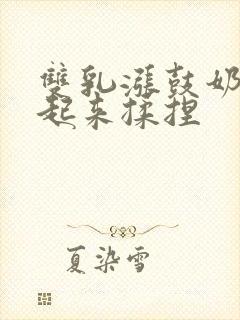 雙乳漲鼓奶
起来揉捏
夏染雪